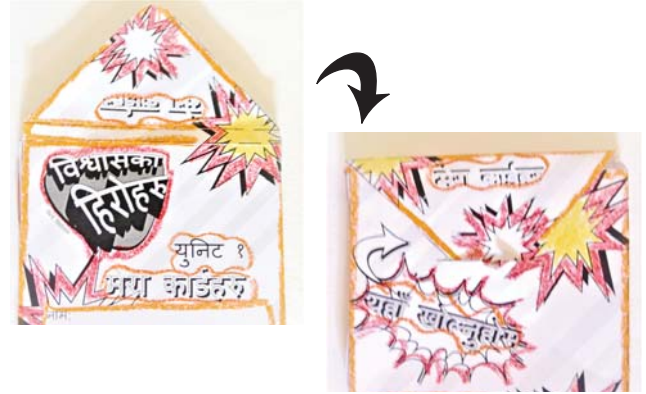 विश्वासका
हिरोहरू
युनिट १
कार्डहरू
नाम:
यहाँ खोल्नुहोस्